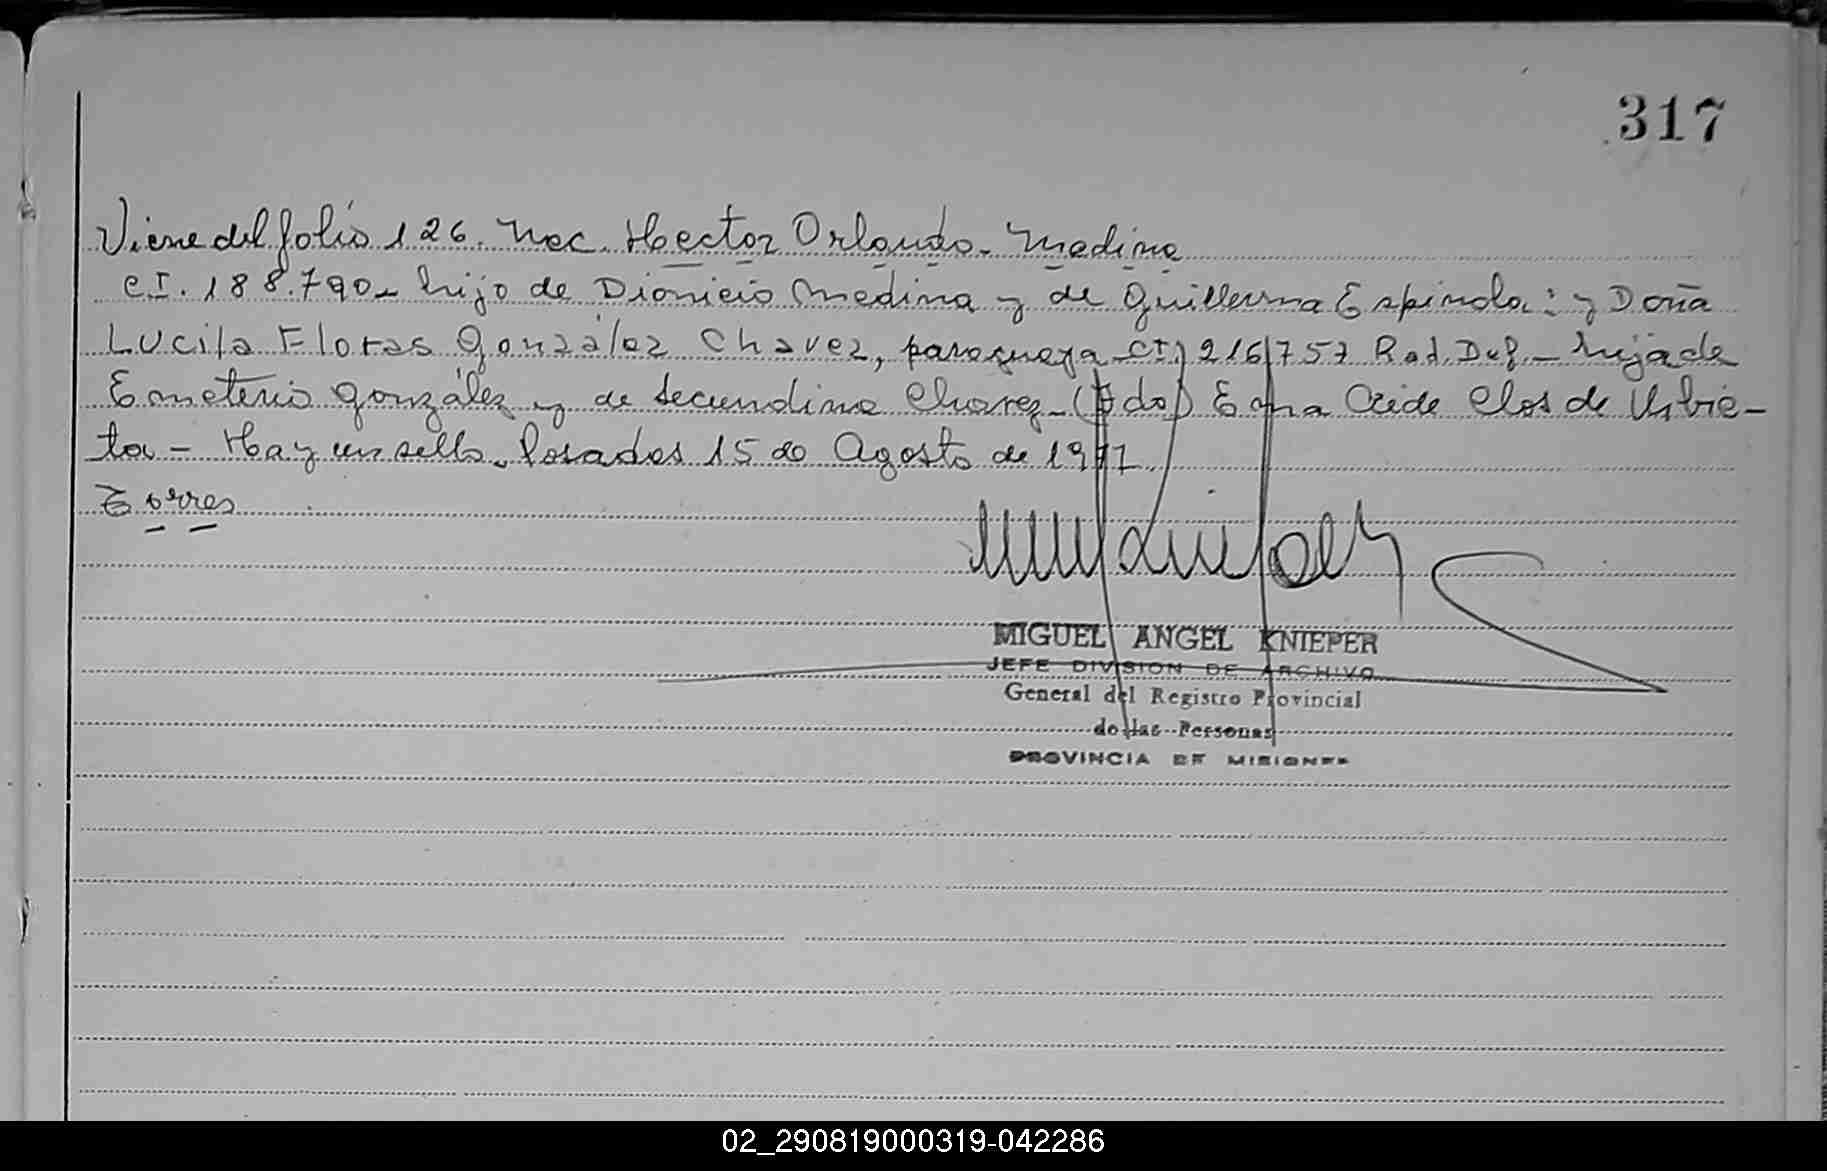 317
Viene del folio 126. Nac. Hector Orlando. Medina
CI. 188.790 - hijo de Dionicio Medina y de Guillerma Espinola: y Doña
Lucila Floras González Chavez, paraguaya CI) 216757 Rad. Def. - hija de
Emeterio González y de Secundina Chavez - (Fdo) Edna Cieide Clos de Urbie-
ta - Hay un sello. Posadas 15 de Agosto de 1977.
Torres
MIGUEL ANGEL KNIEPER
JEFE DIVISION DE ARCHIVO
General del Registro Provincial
de las Personas
PROVINCIA DE MISIONES
02_290819000319-042286